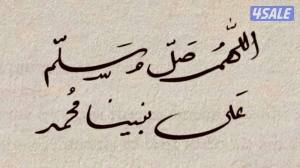 4SALE
اللهُم صَلّ وسَلّم
عَلى نبينا مُحمد